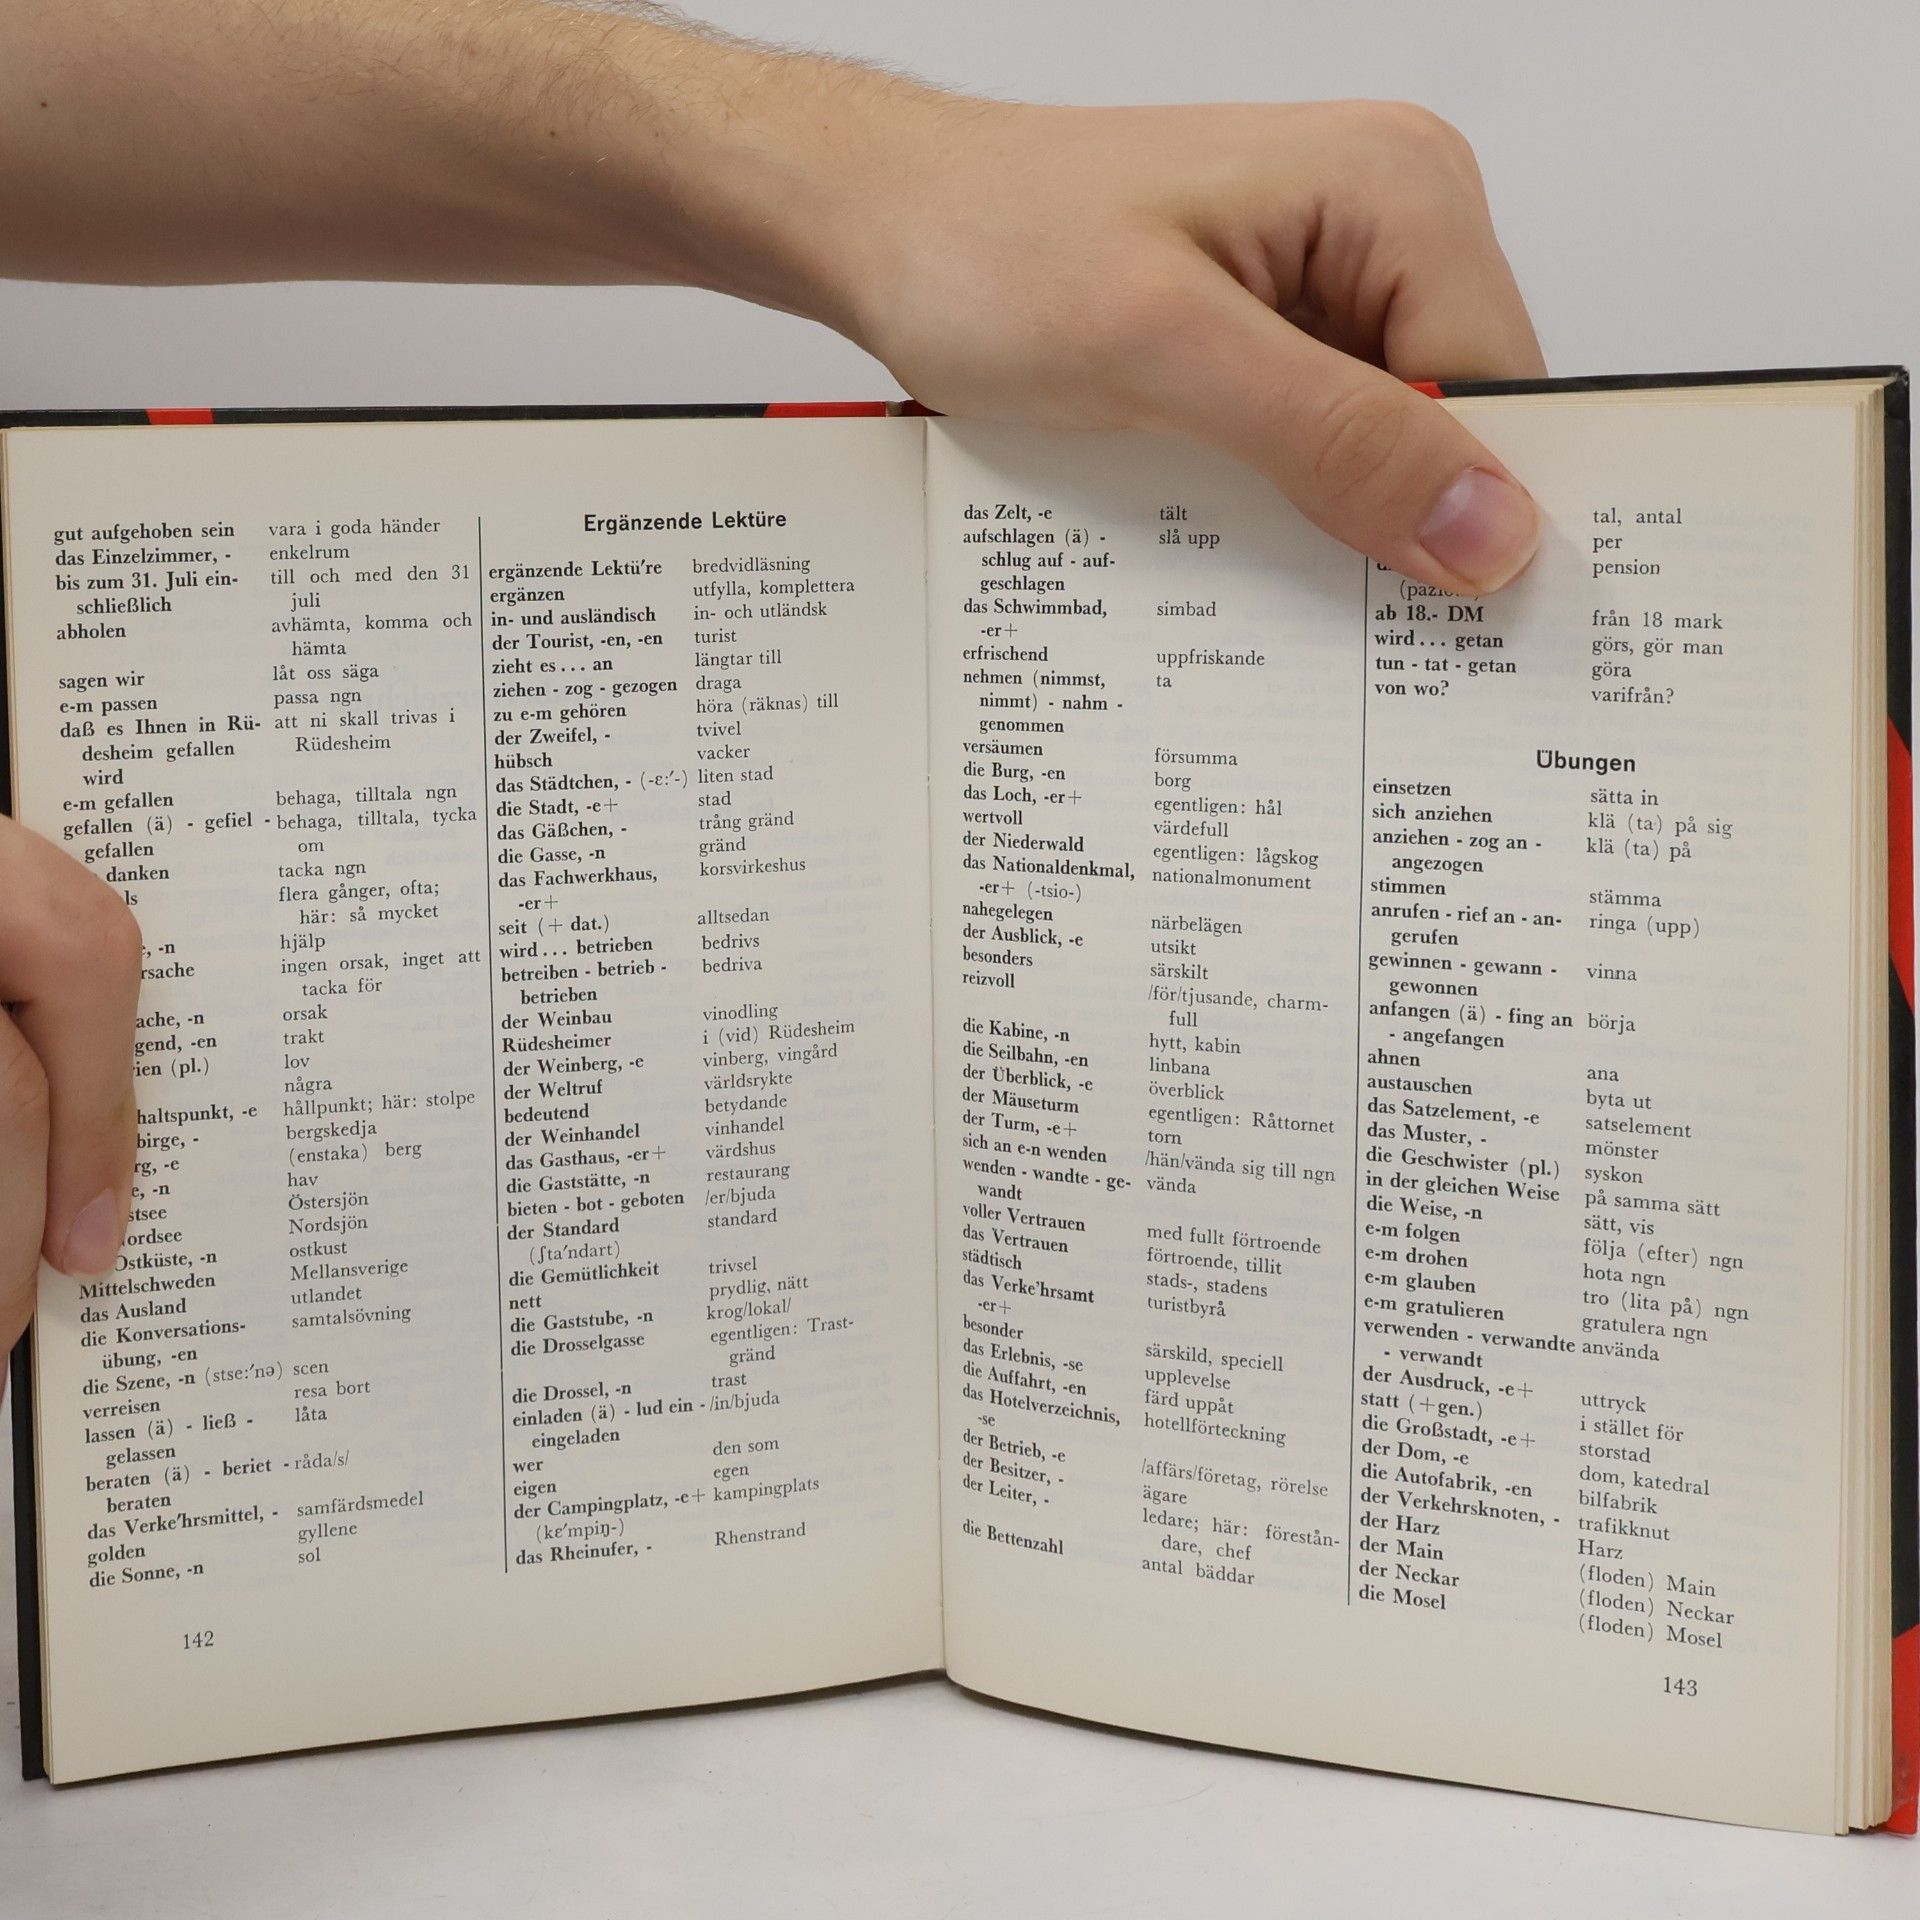 gut aufgehoben sein vara i goda händer
das Einzelzimmer, - enkelrum
bis zum 31. Juli ein- till och med den 31
schließlich juli
abholen avhämta, komma och
hämta
sagen wir låt oss säga
e-m passen passa ngn
daß es Ihnen in Rü- att ni skall trivas i
desheim gefallen Rüdesheim
wird
e-m gefallen behaga, tilltala ngn
gefallen (ä) - gefiel - behaga, tilltala, tycka
gefallen om
danken tacka ngn
flera gånger, ofta;
här: så mycket
-n hjälp
ingen orsak, inget att
tacka för
-n orsak
-en trakt
(pl.) lov
några
-e hållpunkt; här: stolpe
- bergskedja
-e (enstaka) berg
-n hav
Östersjön
Nordsjön
Ostküste, -n ostkust
Mittelschweden Mellansverige
das Ausland utlandet
die Konversations- samtalsövning
übung, -en
die Szene, -n (stse:'nə) scen
verreisen resa bort
lassen (ä) - ließ - låta
gelassen
beraten (ä) - beriet - råda/s/
beraten
das Verke'hrsmittel, - samfärdsmedel
golden gyllene
die Sonne, -n sol
142
Ergänzende Lektüre
ergänzende Lektü're bredvidläsning
ergänzen utfylla, komplettera
in- und ausländisch in- och utländsk
der Tourist, -en, -en turist
zieht es... an längtar till
ziehen - zog - gezogen draga
zu e-m gehören höra (räknas) till
der Zweifel, - tvivel
hübsch vacker
das Städtchen, - (-ɛ:'-) liten stad
die Stadt, -e+ stad
das Gäßchen, - trång gränd
die Gasse, -n gränd
das Fachwerkhaus, korsvirkeshus
-er+
seit (+ dat.) alltsedan
wird... betrieben bedrivs
betreiben - betrieb - bedriva
betrieben
der Weinbau vinodling
Rüdesheimer i (vid) Rüdesheim
der Weinberg, -e vinberg, vingård
der Weltruf världsrykte
bedeutend betydande
der Weinhandel vinhandel
das Gasthaus, -er+ värdshus
die Gaststätte, -n restaurang
bieten - bot - geboten /er/bjuda
der Standard standard
(ʃta'ndart)
die Gemütlichkeit trivsel
nett prydlig, nätt
die Gaststube, -n krog/lokal/
die Drosselgasse egentligen: Trast-
gränd
die Drossel, -n trast
einladen (ä) - lud ein - /in/bjuda
eingeladen
wer den som
eigen egen
der Campingplatz, -e+ kampingplats
(kɛ'mpiŋ-)
das Rheinufer, - Rhenstrand
das Zelt, -e tält
aufschlagen (ä) - slå upp
schlug auf - auf-
geschlagen
das Schwimmbad, simbad
-er+
erfrischend uppfriskande
nehmen (nimmst, ta
nimmt) - nahm -
genommen
versäumen försumma
die Burg, -en borg
das Loch, -er+ egentligen: hål
wertvoll värdefull
der Niederwald egentligen: lågskog
das Nationaldenkmal, nationalmonument
-er+ (-tsio-)
nahegelegen närbelägen
der Ausblick, -e utsikt
besonders särskilt
reizvoll /för/tjusande, charm-
full
die Kabine, -n hytt, kabin
die Seilbahn, -en linbana
der Überblick, -e överblick
der Mäuseturm egentligen: Råttornet
der Turm, -e+ torn
sich an e-n wenden /hän/vända sig till ngn
wenden - wandte - ge- vända
wandt
voller Vertrauen med fullt förtroende
das Vertrauen förtroende, tillit
städtisch stads-, stadens
das Verke'hrsamt turistbyrå
-er+
besonder särskild, speciell
das Erlebnis, -se upplevelse
die Auffahrt, -en färd uppåt
das Hotelverzeichnis, hotellförteckning
-se
der Betrieb, -e /affärs/företag, rörelse
der Besitzer, - ägare
der Leiter, - ledare; här: förestån-
dare, chef
die Bettenzahl antal bäddar
tal, antal
per
pension
ab 18.- DM från 18 mark
wird... getan görs, gör man
tun - tat - getan göra
von wo? varifrån?
Übungen
einsetzen sätta in
sich anziehen klä (ta) på sig
anziehen - zog an - klä (ta) på
angezogen
stimmen stämma
anrufen - rief an - an- ringa (upp)
gerufen
gewinnen - gewann - vinna
gewonnen
anfangen (ä) - fing an börja
- angefangen
ahnen ana
austauschen byta ut
das Satzelement, -e satselement
das Muster, - mönster
die Geschwister (pl.) syskon
in der gleichen Weise på samma sätt
die Weise, -n sätt, vis
e-m folgen följa (efter) ngn
e-m drohen hota ngn
e-m glauben tro (lita på) ngn
e-m gratulieren gratulera ngn
verwenden - verwandte använda
- verwandt
der Ausdruck, -e+ uttryck
statt (+gen.) i stället för
die Großstadt, -e+ storstad
der Dom, -e dom, katedral
die Autofabrik, -en bilfabrik
der Verkehrsknoten, - trafikknut
der Harz Harz
der Main (floden) Main
der Neckar (floden) Neckar
die Mosel (floden) Mosel
143